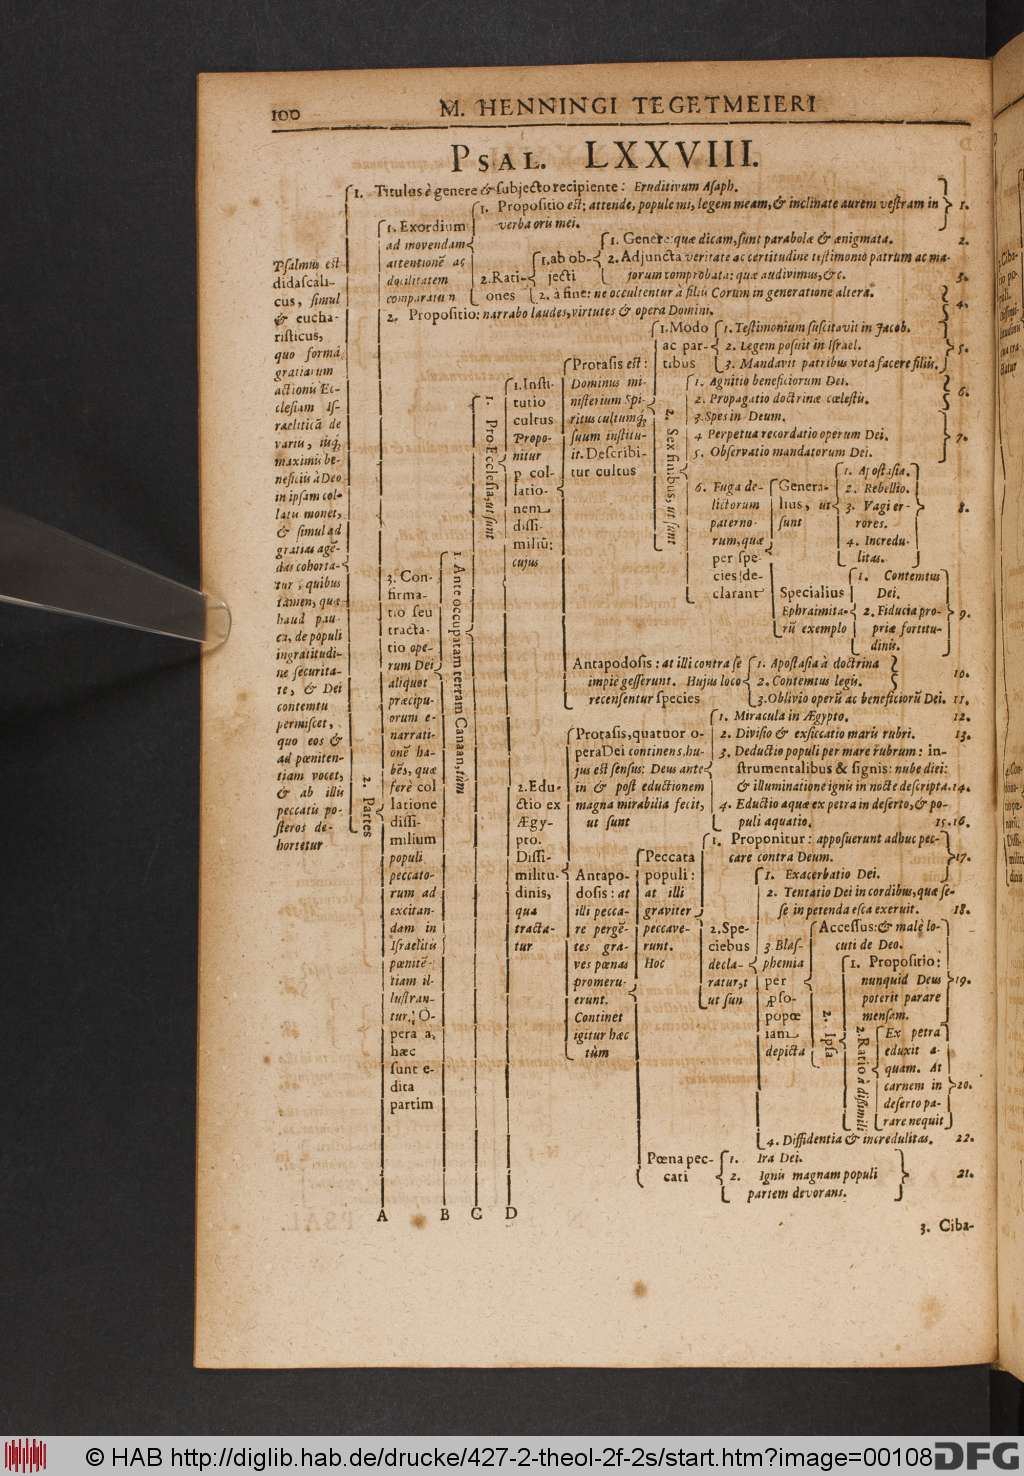 100
M. HENNINGI TEGETMEIERI
PSAL. LXXVIII.
1. Titulus è genere & subjecto recipiente: Eruditivum Asaph.
Psalmus est
didascali-
cus, simul
& eucha-
risticus,
quo formâ
gratiarum
actionis Ec-
clesiam Is-
raeliticã de
variis, iisq́;
maximis be-
neficiis à Deo
in ipsam col-
latis monet,
& simul ad
gratias agẽ-
das cohorta-
tur, quibus
tamen, quia
haud pau-
ca, de populi
ingratitudi-
ne securita-
te, & Dei
contemtu
permiscet,
quo eos &
ad pœniten-
tiam vocet,
& ab illis
peccatis po-
steros de-
hortetur
2. Partes
1. Exordium
ad movendam
attentionẽ ac
docilitatem
comparatum
1. Propositio est: attende, popule mi, legem meam, & inclinate aurem vestram in
verba oris mei.
1.
2. Rati-
ones
1. ab ob-
jecti
1. Genere: quæ dicam, sunt parabolæ & ænigmata.
2.
2. Adjuncta veritate ac certitudine testimonio patrum ac ma-
jorum comprobata: quæ audivimus, &c.
3.
2. à fine: ne occultentur à filiis eorum in generatione altera.
4.
2. Propositio: narrabo laudes, virtutes & opera Domini.
3. Con-
firma-
tio seu
tracta-
tio ope-
rum Dei
aliquot
præcipu-
orum e-
narrati-
onẽ ha-
bẽs, quæ
ferè col
latione
dissi-
milium
populi
peccato-
rum ad
excitan-
dam in
Israelitis
pœnitẽ-
tiam il-
lustran-
tur. O-
pera a,
hæc
sunt e-
dita
partim
1. Ante occupatam terram Canaan, tùm
1. Pro Ecclesia, ut sunt
1. Insti-
tutio
cultus
Propo-
nitur
p col-
latio-
nem
dissi-
miliũ:
cujus
Protasis est:
Dominus mi-
nisterium Spi-
ritus cultumq́;
suum institu-
it. Describi-
tur cultus
1. Modo
ac par-
tibus
1. Testimonium suscitavit in Jacob.
2. Legem posuit in Israel.
3. Mandavit patribus vota facere filiis.
5.
2. Sex finibus, ut sint
1. Agnitio beneficiorum Dei.
2. Propagatio doctrinæ cœlestis.
6.
3. Spes in Deum.
4 Perpetua recordatio operum Dei.
5. Observatio mandatorum Dei.
7.
6. Fuga de-
lictorum
paterno-
rum, quæ
per spe-
cies de-
clarant
Genera-
lius, ut
sunt
1. Apostasia.
2. Rebellio.
3. Vagi er-
rores.
4. Incredu-
litas.
8.
Specialius
Ephraimita-
rũ exemplo
1. Contemtus
Dei.
2. Fiducia pro-
priæ fortitu-
dinis.
9.
Antapodosis: at illi contra se
impie gesserunt. Hujus loco
recensentur species
1. Apostasia à doctrina
2. Contemtus legis.
10.
3. Oblivio operũ ac beneficiorũ Dei. 11.
2. Edu-
ctio ex
Ægy-
pto.
Dissi-
militu-
dinis,
qua
tracta-
tur
Protasis, quatuor o-
pera Dei continens, hu-
jus est sensus: Deus ante
in & post eductionem
magna mirabilia fecit,
ut sunt
1. Miracula in Ægypto. 12.
2. Divisio & exsiccatio maris rubri. 13.
3. Deductio populi per mare rubrum: in-
strumentalibus & signis: nube diei:
& illuminatione ignis in nocte descripta. 14.
4. Eductio aquæ ex petra in deserto, & po-
puli aquatio. 15. 16.
Antapo-
dosis: at
illi pecca-
re pergẽ-
tes gra-
ves pœnas
promeru-
erunt.
Continet
igitur hæc
tùm
Peccata
populi:
at illi
graviter
peccave-
runt.
Hoc
1. Proponitur: apposuerunt adhuc pec-
care contra Deum.
17.
2. Spe-
ciebus
decla-
ratur, t
ut sun
1. Exacerbatio Dei.
2. Tentatio Dei in cordibus, quæ se-
se in petenda esca exeruit. 18.
3 Blas-
phemia
per
ꝓso-
popœ
iam
depicta
Accessus: & malè lo-
cuti de Deo.
2. Ipsa
1. Propositio:
nunquid Deus
poterit parare
mensam.
19.
2. Ratio à dissimili
Ex petra
eduxit a-
quam. At
carnem in
deserto pa-
rare nequit
20.
4. Diffidentia & incredulitas. 22.
Pœna pec-
cati
1. Ira Dei.
2. Ignis magnam populi
partem devorans.
21.
A B C D
3. Ciba-
© HAB http://diglib.hab.de/drucke/427-2-theol-2f-2s/start.htm?image=00108
DFG